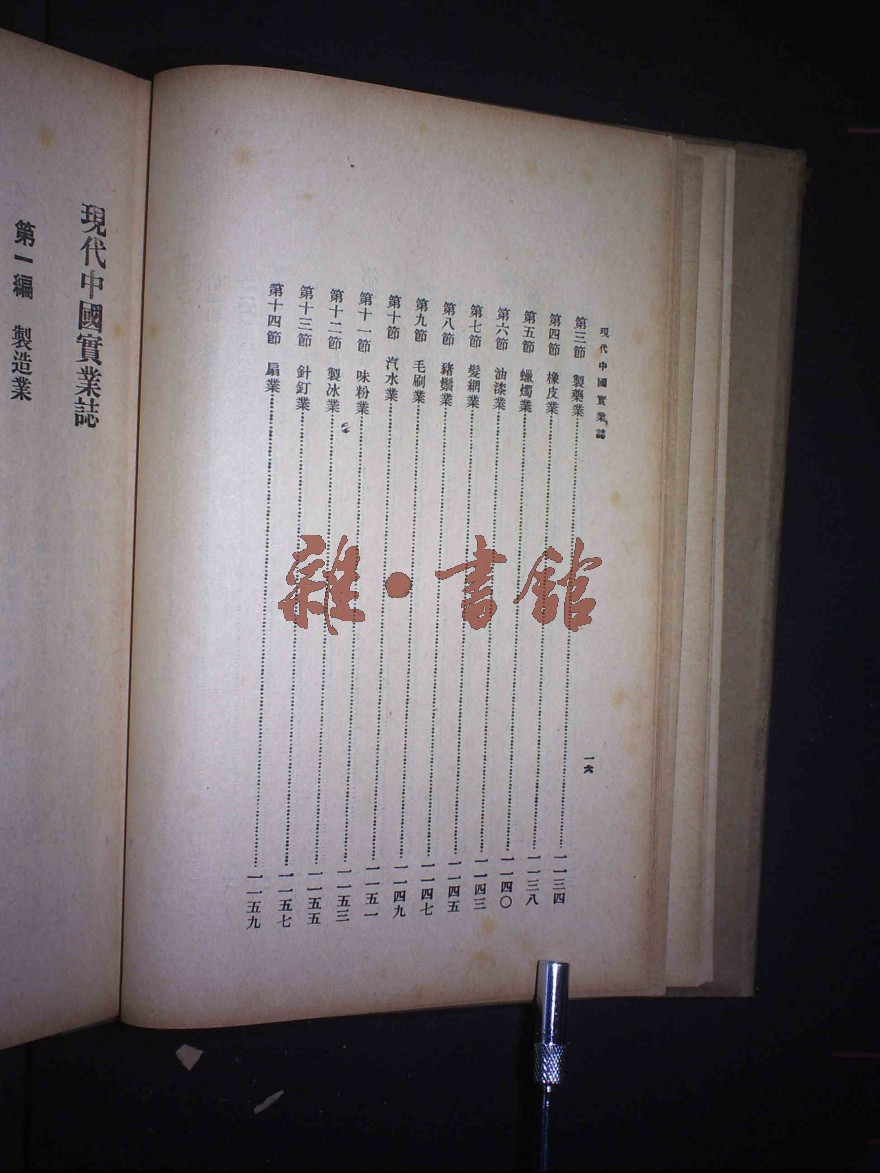 現代中國實業誌
第三節　製藥業……一一三四
第四節　橡皮業……一一三八
第五節　蠟燭業……一一四〇
第六節　油漆業……一一四三
第七節　髮網業……一一四五
第八節　豬鬃業……一一四七
第九節　毛刷業……一一四九
第十節　汽水業……一一五一
第十一節　味粉業……一一五三
第十二節　製冰業……一一五五
第十三節　針釘業……一一五七
第十四節　扇業……一一五九
一六
現代中國實業誌
第一編　製造業
雜·書館